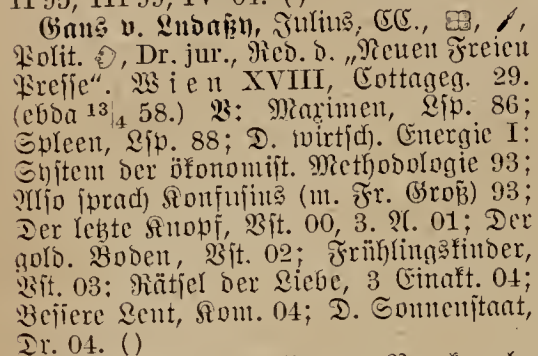 Gans v. Ludaßy, Julius, CC.,
Polit. Dr. jur., Red. d. „Neuen Freien
Presse“. Wien XVIII, Cottageg. 29.
(ebda 13|4 58.) V: Maximen, Lsp. 86;
Spleen, Lsp. 88; D. wirtsch. Energie I:
System der ökonomist. Methodologie 93;
Also sprach Konfusius (m. Fr. Groß) 93;
Der letzte Knopf, Vst. 00, 3. A. 01; Der
gold. Boden, Vst. 02; Frühlingskinder,
Vst. 03; Rätsel der Liebe, 3 Einakt. 04;
Bessere Leut, Kom. 04; D. Sonnenstaat,
Dr. 04. ()